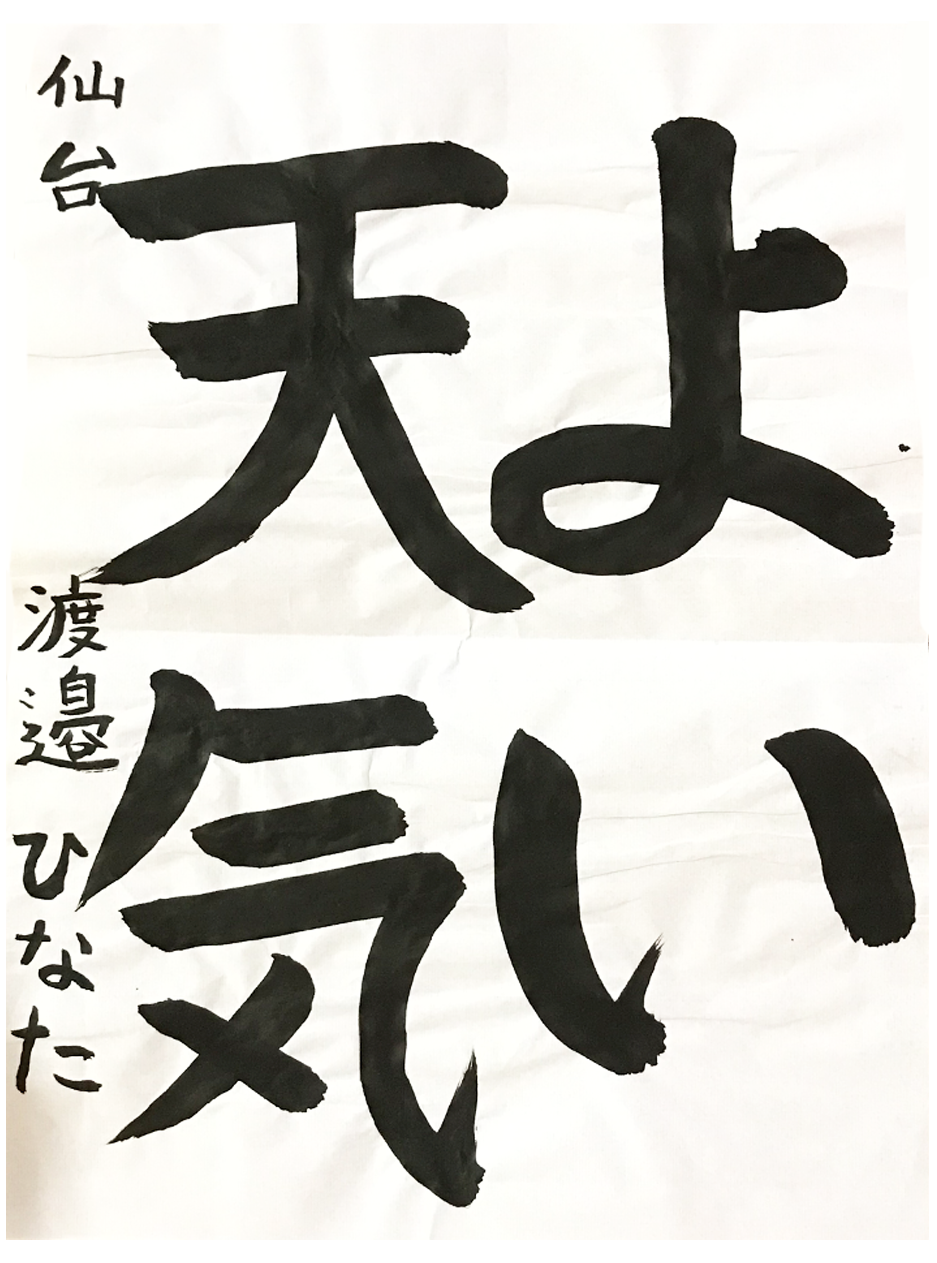 よい
天気
仙台 渡邉 ひなた